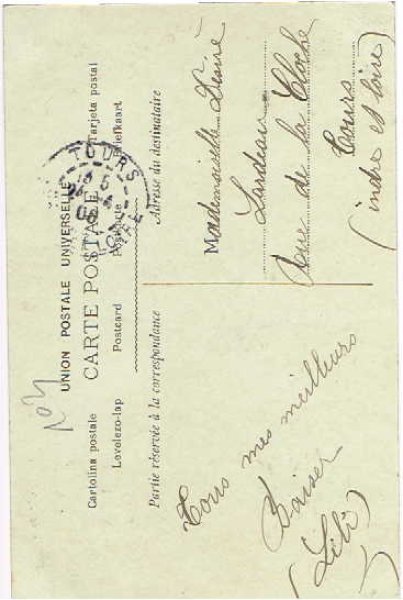 UNION POSTALE UNIVERSELLE
CARTE POSTALE
Cartolina postale
Tarjeta postal
Levelezo-lap
Postcard
Postkarte
Briefkaart
Partie réservée à la correspondance
Adresse du destinataire
TOURS
LOIRE
No 4
Tous mes meilleurs
Baiser
(Lili)
Mademoiselle
Landeau
Rue de la Cloche
Tours
(indre et loire)